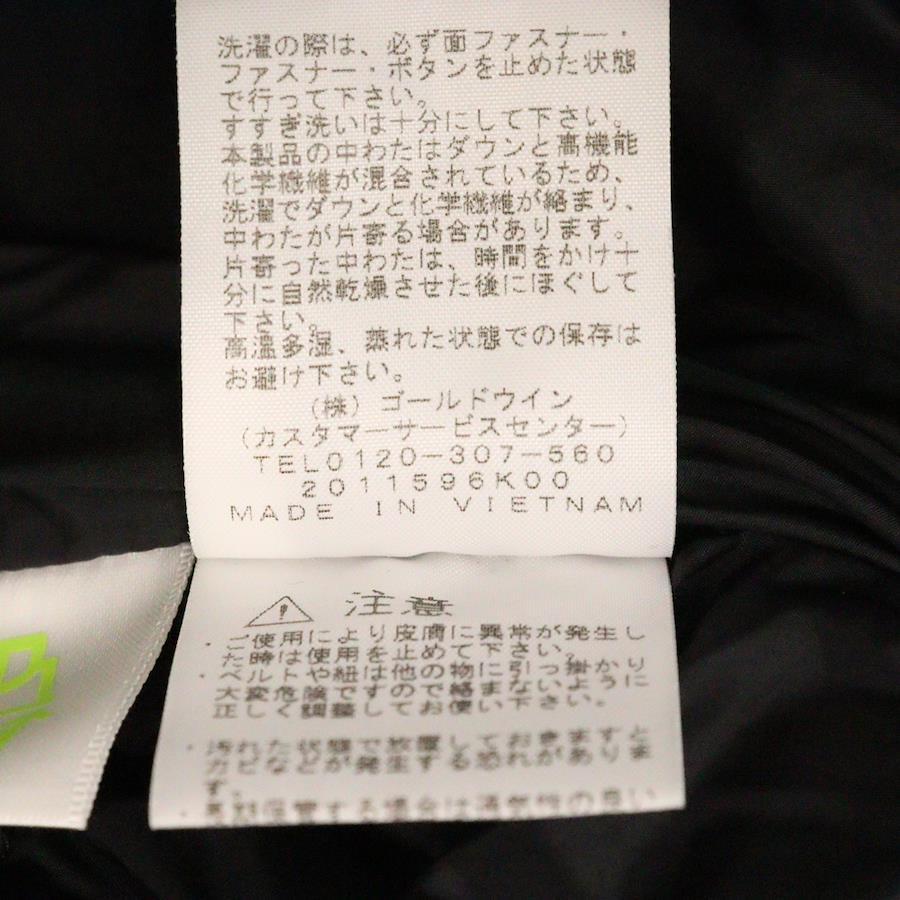 洗濯の際は、必ず面ファスナー・
ファスナー・ボタンを止めた状態
で行って下さい。
すすぎ洗いは十分にして下さい。
本製品の中わたはダウンと高機能
化学繊維が混合されているため、
洗濯でダウンと化学繊維が絡まり、
中わたが片寄る場合があります。
片寄った中わたは、時間をかけ十
分に自然乾燥させた後にほぐして
下さい。
高温多湿、蒸れた状態での保存は
お避け下さい。
(株)ゴールドウイン
(カスタマーサービスセンター)
TEL0120-307-560
2011596K00
MADE IN VIETNAM
注意
・ご使用により皮膚に異常が発生し
た時は使用を止めて下さい。
・ベルトや紐は他の物に引っ掛かり
大変危険ですので絡まないように
正しく調整してお使い下さい。
・汚れた状態で放置しておきますと
カビなどが発生する恐れがありま
す。
・長期保管する場合は通気性の良い